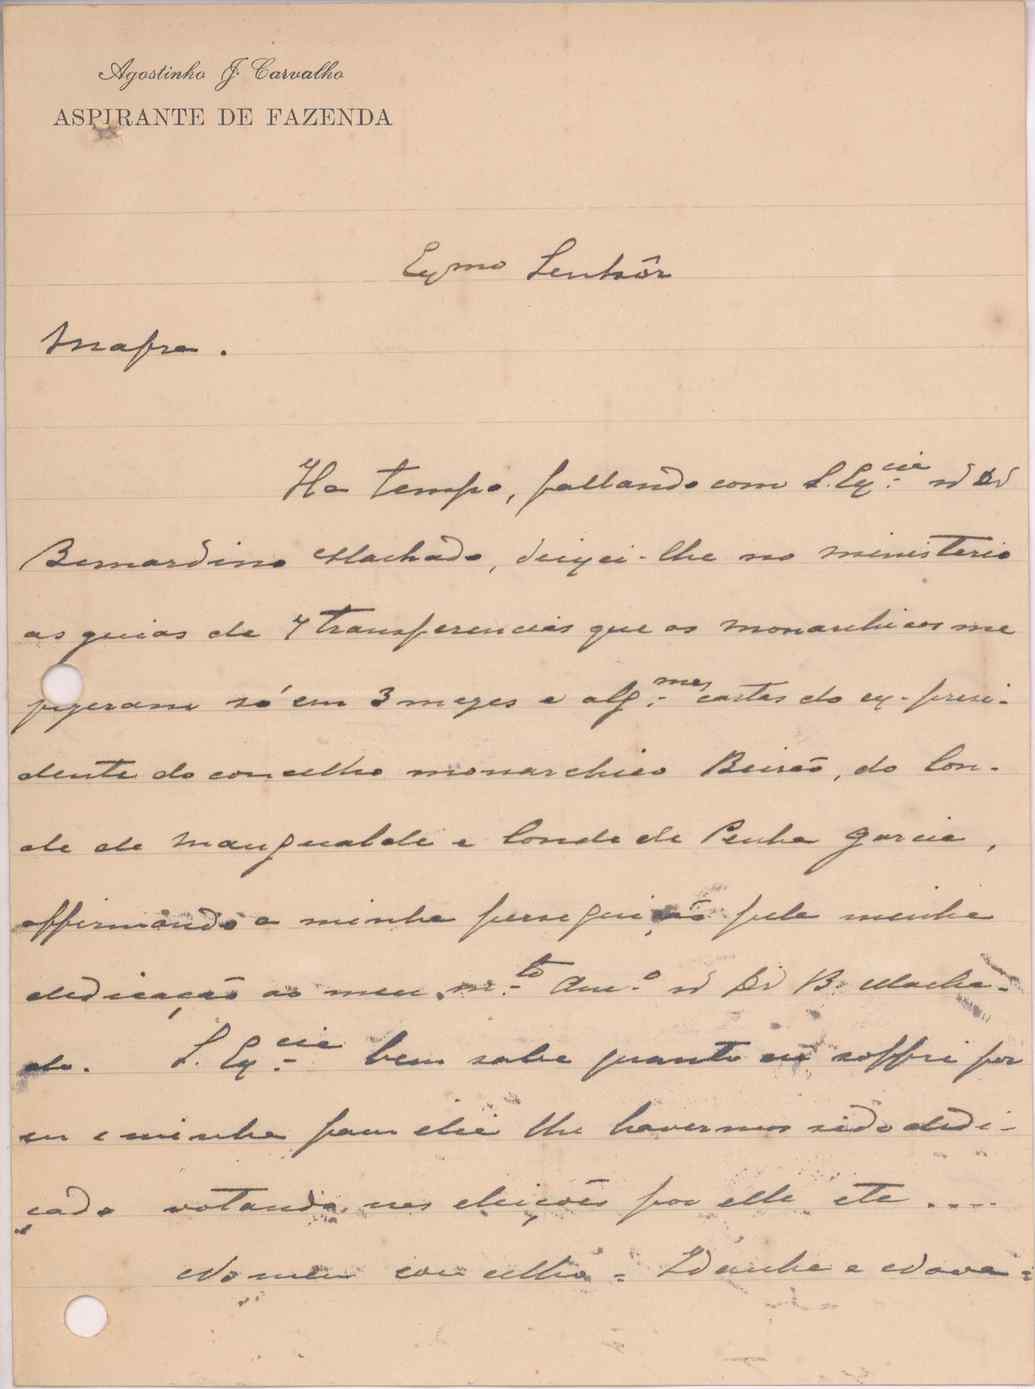 Agostinho J. Carvalho
ASPIRANTE DE FAZENDA
Exmo Senhôr
Mafra.
Ha tempo, fallando com S. Excia o Dr
Bernardino Machado, deixei-lhe no ministerio
as guias de 7 transferencias que os monarchicos me
fizeram só em 3 mezes e algmas cartas do ex-presi-
dente do concelho monarchico Beirão, do Con-
de de Mangualde e Conde de Penha Garcia,
affirmando a minha perseguição pela minha
dedicação ao meu mto Amo Dr B. Macha-
do. S. Excia bem sabe quanto eu soffri por
eu e minha familia lhe havermos sido dedi-
cado votando nas eleições por elle etc ....
No meu concelho = Idanha a Nova =